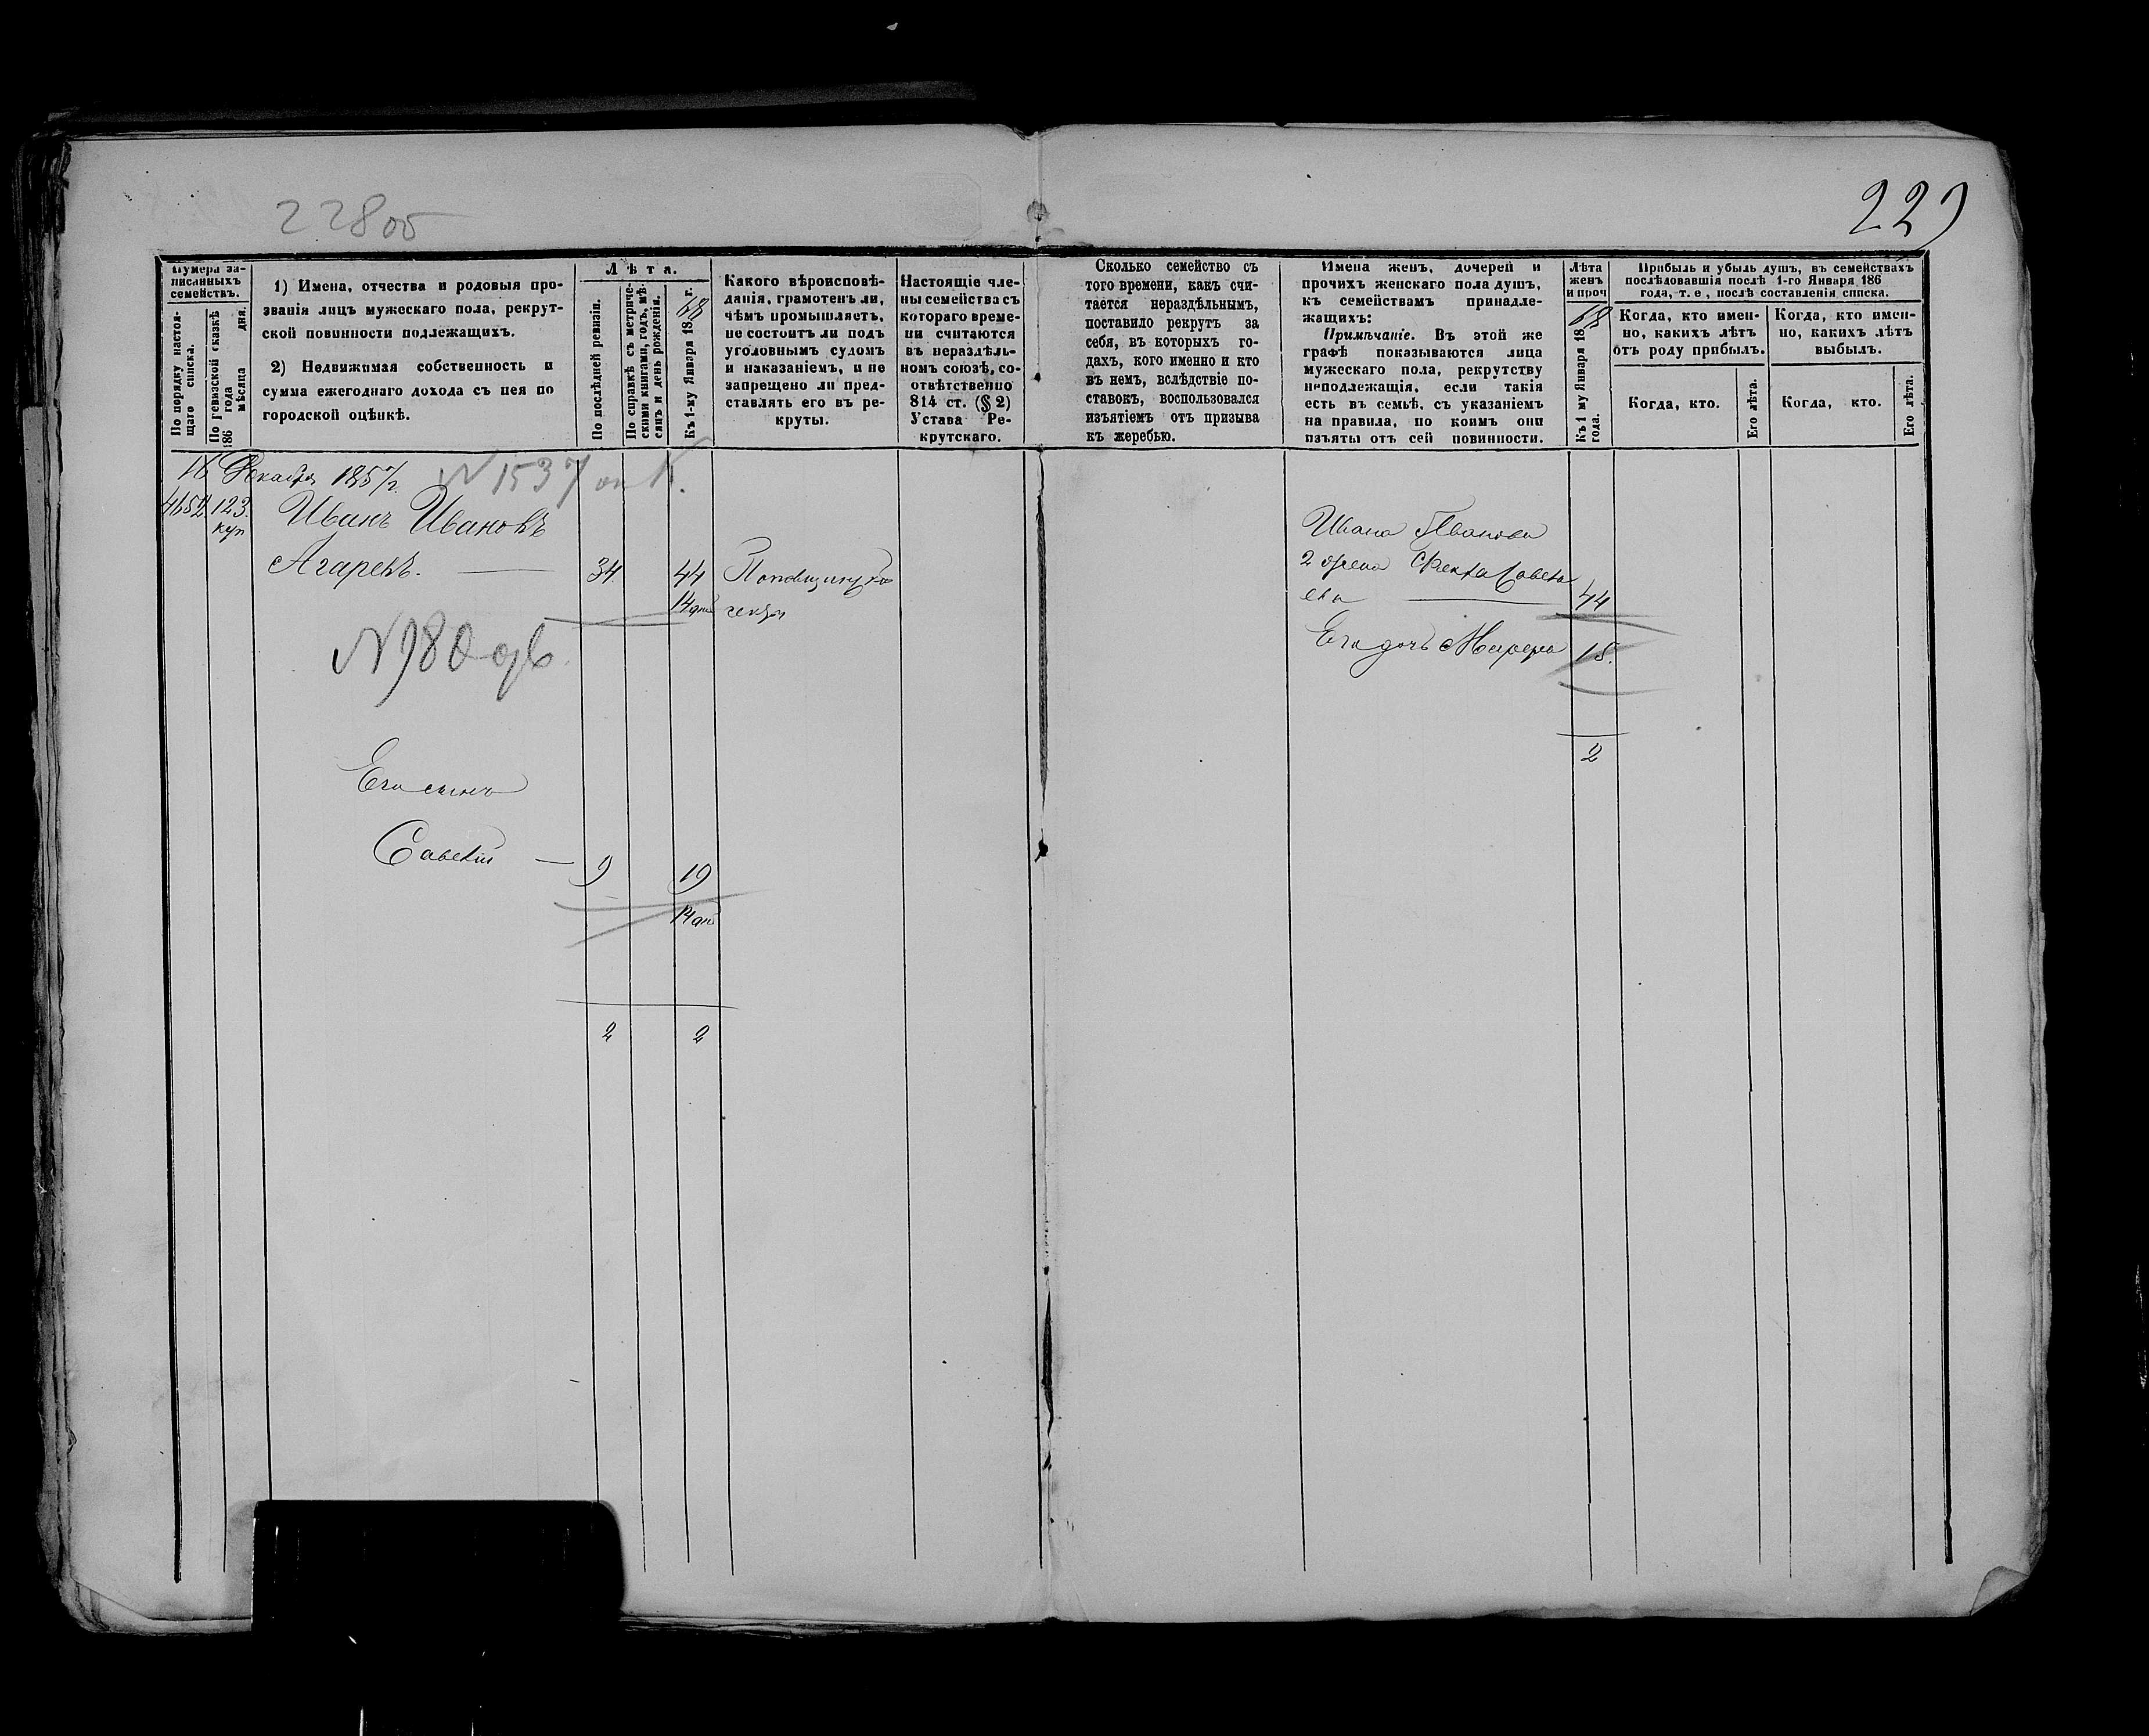 228 об
229
Нумера за-
писанныхъ
семействъ.
По порядку настоя-
щаго списка.
По ревизской сказкѣ
186 года
мѣсяца дня.
1) Имена, отчества и родовыя про-
званія лицъ мужескаго пола, рекрут-
ской повинности подлежащихъ.
2) Недвижимая собственность и
сумма ежегоднаго дохода съ нея по
городской оцѣнкѣ.
Лѣта.
По послѣдней ревизіи.
По справкѣ съ метриче-
скими книгами, годъ, мѣ-
сяцъ и день рожденія.
Къ 1-му Января 1868 г.
Какого вѣроисповѣ-
данія, грамотенъ ли,
чѣмъ промышляетъ,
не состоитъ ли подъ
уголовнымъ судомъ
и наказаніемъ, и не
запрещено ли пред-
ставлять его въ ре-
круты.
Настоящіе чле-
ны семейства съ
котораго време-
ни считаются
въ нераздѣль-
номъ союзѣ, со-
отвѣтственно
814 ст. (§ 2)
Устава Ре-
крутскаго.
Сколько семейство съ
того времени, какъ счи-
тается нераздѣльнымъ,
поставило рекрутъ за
себя, въ которыхъ го-
дахъ, кого именно и кто
въ немъ, вслѣдствіе по-
ставокъ, воспользовался
изъятіемъ отъ призыва
къ жеребью.
Имена женъ, дочерей и
прочихъ женскаго пола душъ,
къ семействамъ принадле-
жащихъ:
Примѣчаніе. Въ этой же
графѣ показываются лица
мужескаго пола, рекрутству
неподлежащія, если такія
есть въ семьѣ, съ указаніемъ
на правила, по коимъ они
изъяты отъ сей повинности.
Лѣта
женъ
и проч
Къ 1 му Января 1868
года.
Прибыль и убыль душъ, въ семействахъ
послѣдовавшія послѣ 1-го Января 186
года, т. е, послѣ составленія списка.
Когда, кто имен-
но, какихъ лѣтъ
отъ роду прибылъ.
Когда, кто имен-
но, какихъ лѣтъ
выбылъ.
Когда, кто.
Его лѣта.
Когда, кто.
Его лѣта.
16 Декабря 1857 г.
N 1537
123.
куп
Иванъ Ивановъ
Агаревъ.
34
44
14 дн
N 980
Его сынъ
Савелій
9
19
14 дн
2
2
Ивана Иванова
2 жена Фекла Савелье
ева
44
Его дочь
15.
2